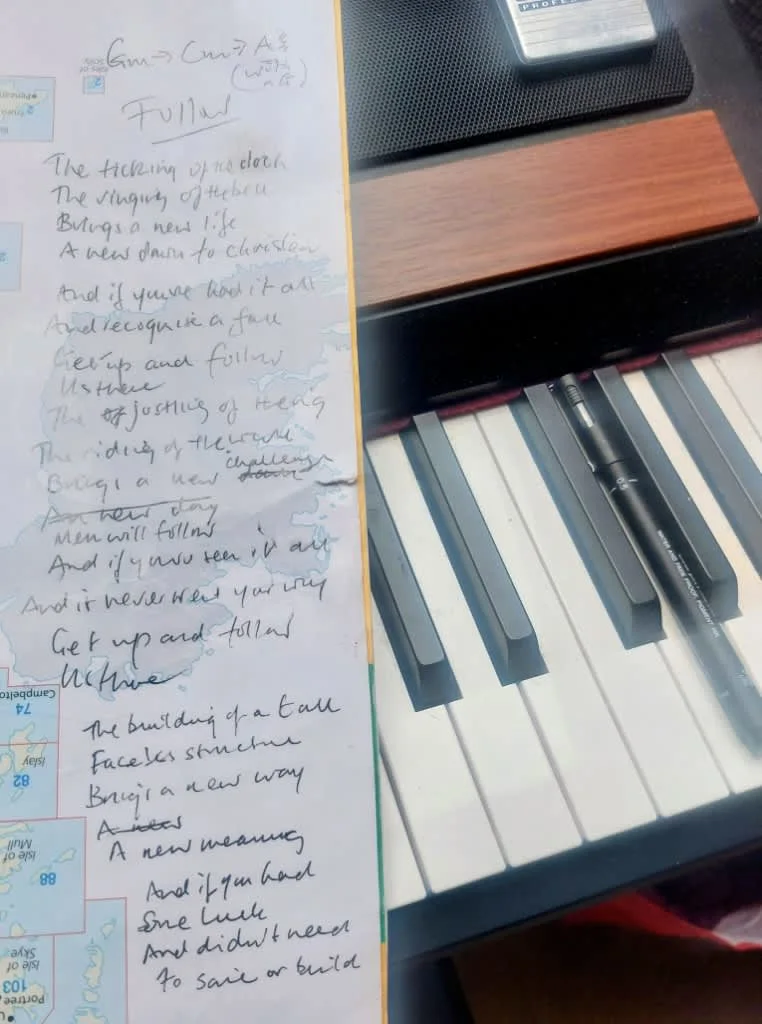 Gm → Cm → A
(with
Follow
The ticking of the clock
The ringing of the bell
Brings a new life
A new dawn to christian
And if you've had it all
And recognise a fall
Get up and follow
Us three
The jostling of
The riding of the
Brings a new challenge
A new day
Men will follow
And if you've seen it all
And it never went your way
Get up and follow
Us three
The building of a tall
Faceless structure
Brings a new way
A new
A new meaning
And if you had
Some luck
And didn't need
To save or build
2
Campbelto
74
Islay
82
Isle of
Mull
88
Isle of
Skye
103
Portree
PROFE
0.5